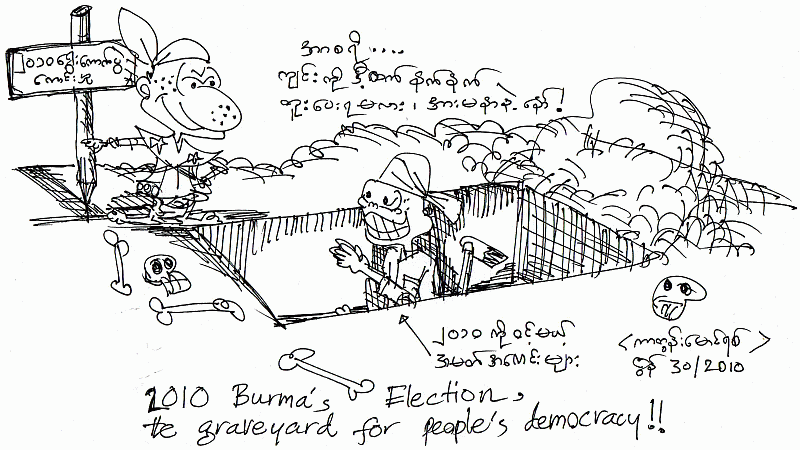 ၂၀၁၀ရွေးကောက်ပွဲ
ကောင်းဘွဲ
အာစရိ ....
ကျင်းကို ဒီ့ထက် နက်နက်
တူးပေးရမလား ၊ အားမနာနဲ့နော် !
၂၀၁၀ ကို ဝင့်မယ့်
အမတ်အလောင်းများ
<ကာတွန်းမောင်ရစ်>
ဇွန် 30/2010
2010 Burma's Election,
the graveyard for people's democracy!!